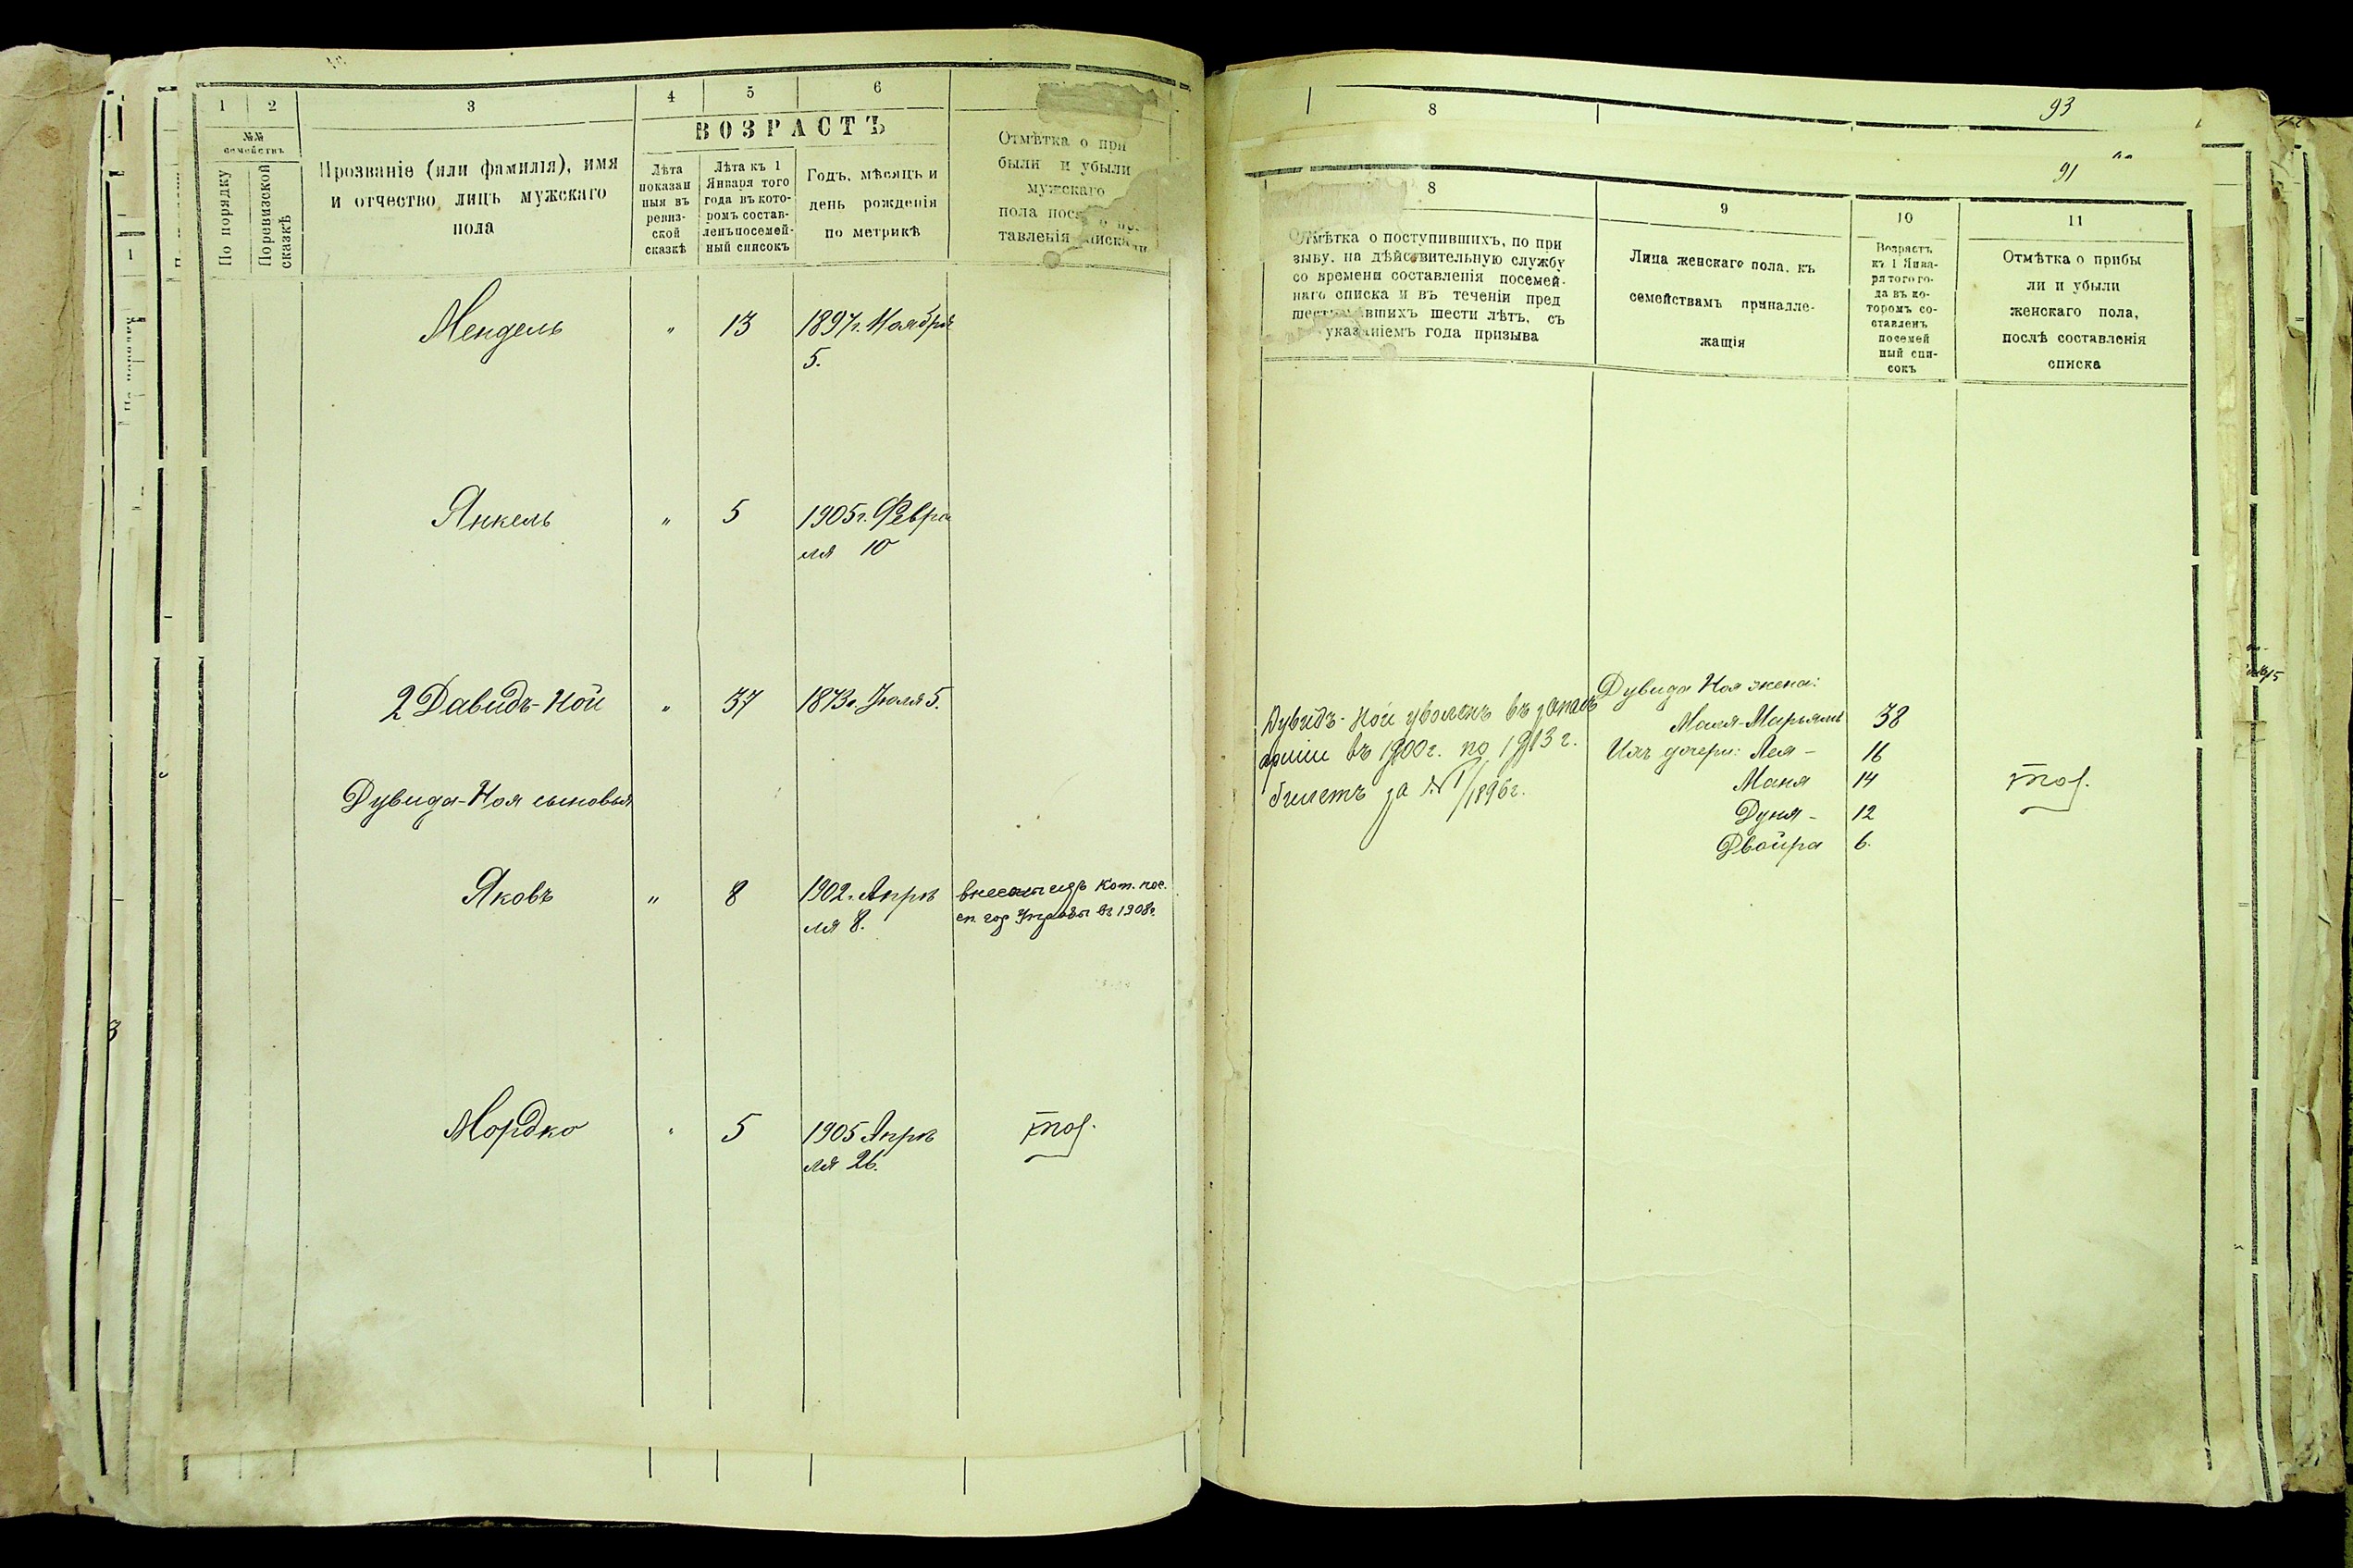 1
2
3
4
5
6
№№
семействъ
По порядку
По ревизской
сказкѣ
Прозваніе (или фамилія), имя
и отчество лицъ мужскаго
пола
ВОЗРАСТЪ
Лѣта
показан
ныя въ
ревиз-
ской
сказкѣ
Лѣта къ 1
Января того
года въ кото-
ромъ состав-
ленъ посемей-
ный списокъ
Годъ, мѣсяцъ и
день рожденія
по метрикѣ
Отмѣтка о при
были и убыли
мужскаго
пола
тавленія списка
Мендель " 13 1897г. Ноября
5.
Янкель " 5 1905г. Февра
ля 10
2 Давидъ-Ной " 37 1873г. Іюля 5.
Дувида-Ноя сыновья
Яковъ " 8 1902г. Апрѣ
ля 8.
внесены изъ
сп. гор Управы въ 1908г.
Мордко " 5 1905 Апрѣ
ля 26.
тоз.
8
93
91
8
9
10
11
Отмѣтка о поступившихъ, по при
зыву, на дѣйствительную службу
со времени составленія посемей-
наго списка и въ теченіи пред
шествовавшихъ шести лѣтъ, съ
указаніемъ года призыва
Лица женскаго пола, къ
семействамъ принадле-
жащія
Возрастъ
къ 1 Янва-
ря того го-
да въ ко-
торомъ со-
ставленъ
посемей
ный спи-
сокъ
Отмѣтка о прибы
ли и убыли
женскаго пола,
послѣ составленія
списка
Дувидъ-Ной уволенъ въ запасъ
арміи въ 1900г. по 1913г.
билетъ за №1/1896г.
Дувида Ноя жена:
Маля-Марьямъ 38
Ихъ дочери: Лея - 16
Маня 14
Дуня - 12
Двойра 6.
тоз.